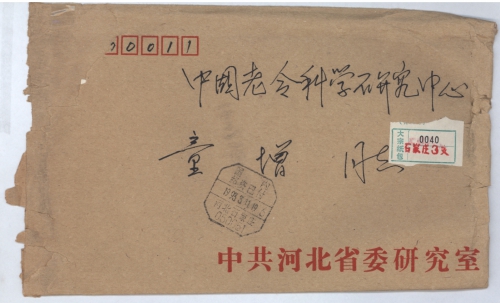 0011
中国老令科学研究中心
童增 同志
大宗纸包
0040
石家庄3支
中共河北省委研究室